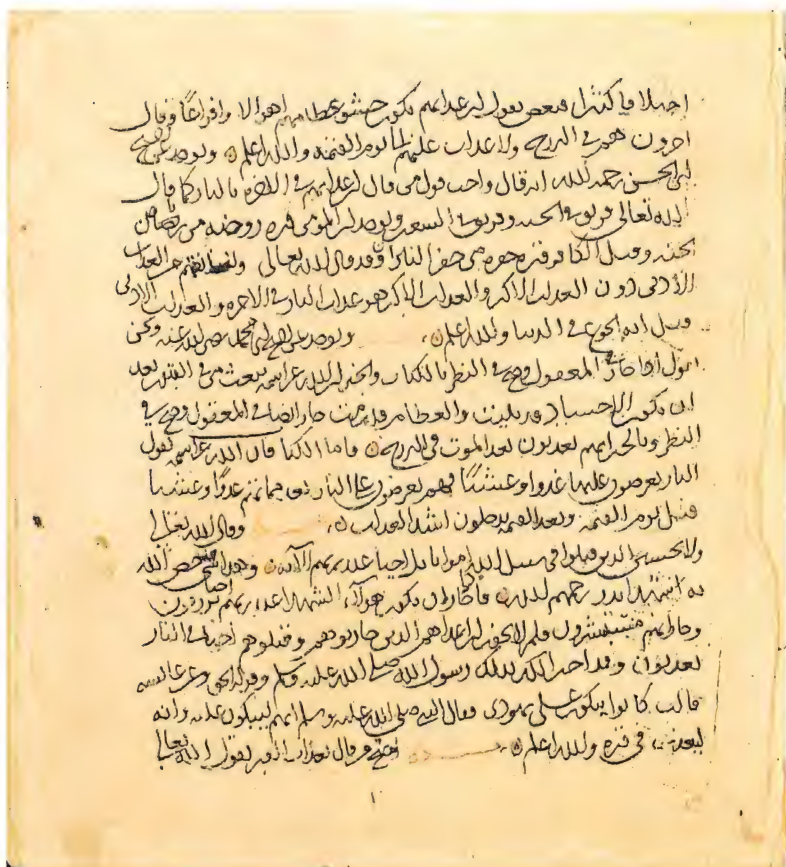 اختلافا كثيرا فبعض يقول ان عذابهم يكون حشو عظامهم اهوالا وافزاعا وقال
اخرون هم في البرزخ ولا عذاب عليهم الى يوم القيمة والله اعلم ويوجد عن
ابي الحسن رحمه الله انه قال واحب قول من قال ان عذابهم في الاخرة بالنار كما قال
الله تعالى فريق في الجنة وفريق في السعير ويوجد ان المومن قبره روضة من رياض
الجنة وقيل الكافر قبره حفرة من حفر النار وقد قال الله تعالى ولنذيقنهم من العذاب
الادنى دون العذاب الاكبر والعذاب الاكبر هو عذاب النار في الاخرة والعذاب الادنى
قيل انه الجوع في الدنيا والله اعلم ويوجد عن ابي محمد رضي الله عنه ونحن
نقول اذا جاز في المعقول وصح في النظر بالكتاب والخبر ان الله يبعث من في القبور بعد
ان تكون الاجساد قد بليت والعظام قد رمت جاز ايضا في المعقول وصح في
النظر وبالخبر انهم يعذبون بعد الموت في البرزخ فاما الكتاب فان الله يقول
النار يعرضون عليها غدوا وعشيا فهم يعرضون على النار بعد مماتهم غدوا وعشيا
قبل يوم القيمة وبعد القيمة يدخلون اشد العذاب وقال الله تعالى
ولا تحسبن الذين قتلوا في سبيل الله امواتا بل احيا عند ربهم الاية وهذا شي خص الله
به رحمهم الله فاذا جاز ان يكون هولاء الشهدا عند ربهم احيا يرزقون
وجاز انهم مستبشرون فلم لا يجوز ان اعداهم الذين حاربوهم وقتلوهم احيا في النار
يعذبون وقد اخبر بذلك رسول الله صلى الله عليه وسلم وقوله الحق
قالت كانوا يبكون على يهودي فقال النبي صلى الله عليه وسلم انهم ليبكون عليه وانه
ليعذب في قبره والله اعلم من قال بعذاب القبر بقول الله تعالى